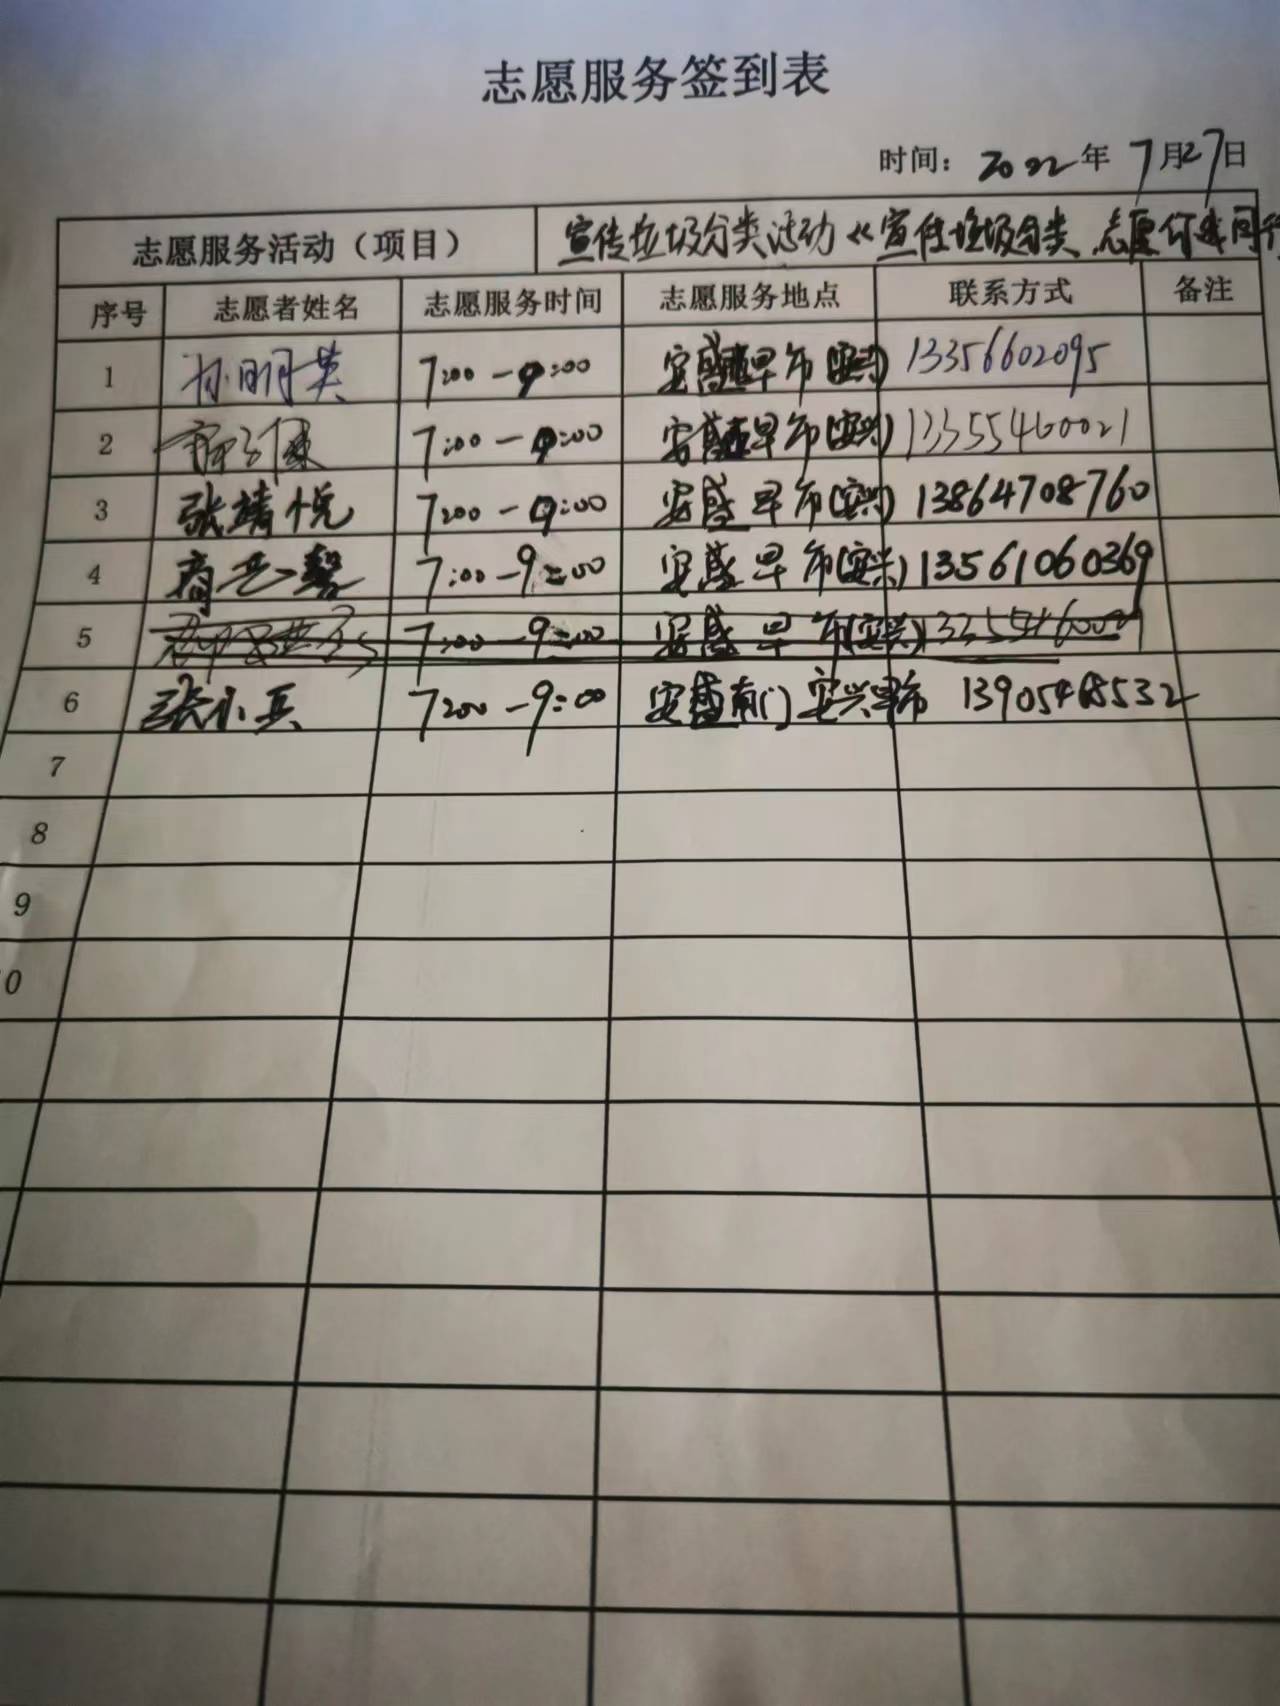 志愿服务签到表
时间：2022年7月27日
志愿服务活动（项目） 宣传垃圾分类活动《宣传垃圾分类 志愿
序号 志愿者姓名 志愿服务时间 志愿服务地点 联系方式 备注
1 孙明英 7:00-9:00 安盛早市(安兴) 13356602095
2 7:00-9:00 安盛早市(安兴) 13355460021
3 张靖悦 7:00-9:00 安盛早市(安兴) 13864708760
4 商艺馨 7:00-9:00 安盛早市(安兴) 13561060369
5 7:00-9:00 安盛早市(安兴)
6 张小兵 7:00-9:00 安盛南门 安兴早市
7
8
9
0